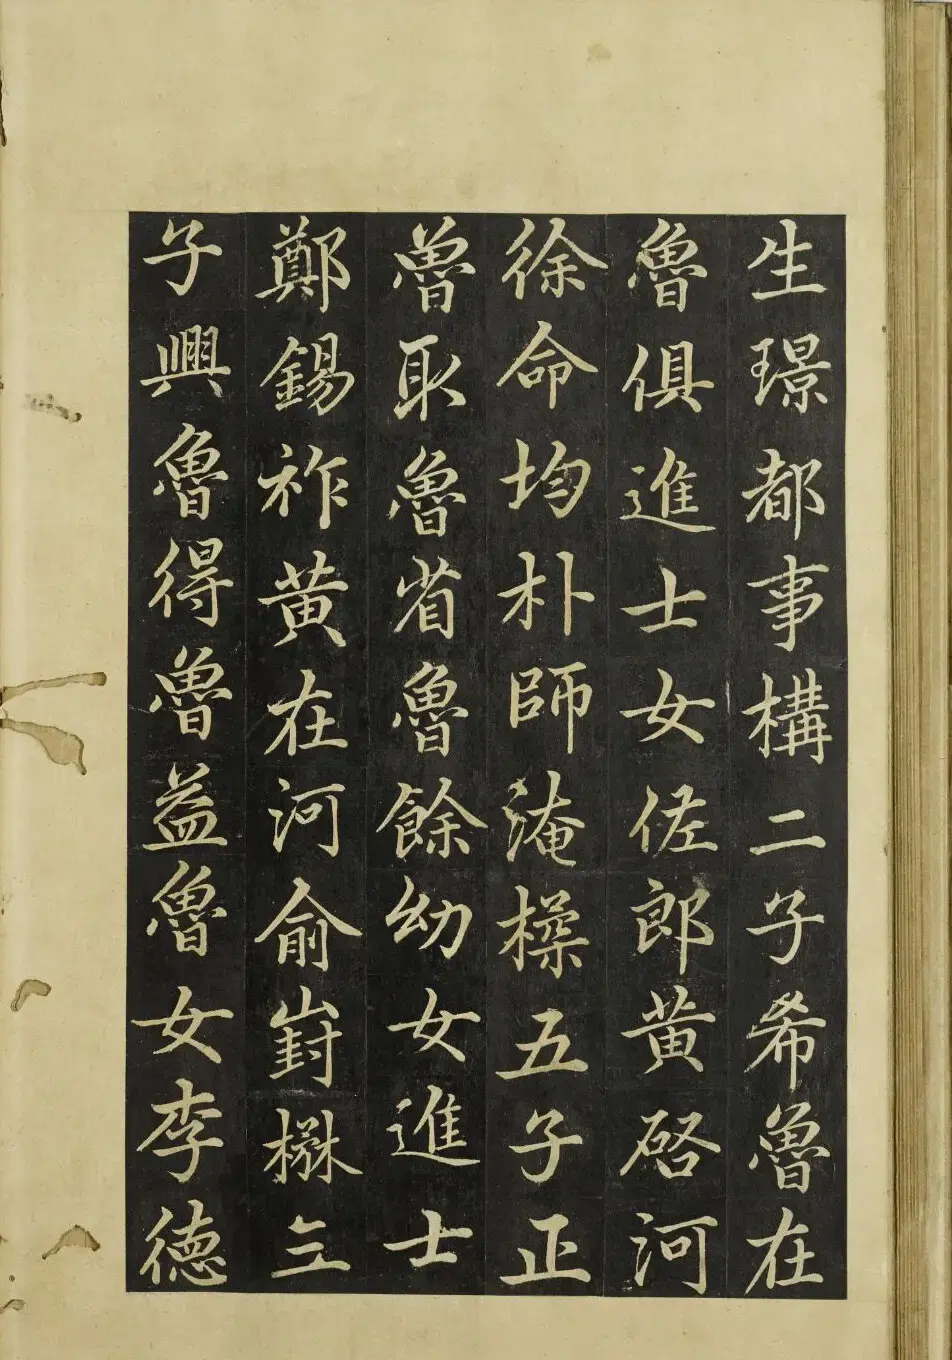 生璟都事構二子希魯在
魯俱進士女佐郎黄啓河
徐命均朴師淹橾五子正
魯取魯省魯餘幼女進士
鄭錫祚黄在河俞㟁楙三
子興魯得魯益魯女李德